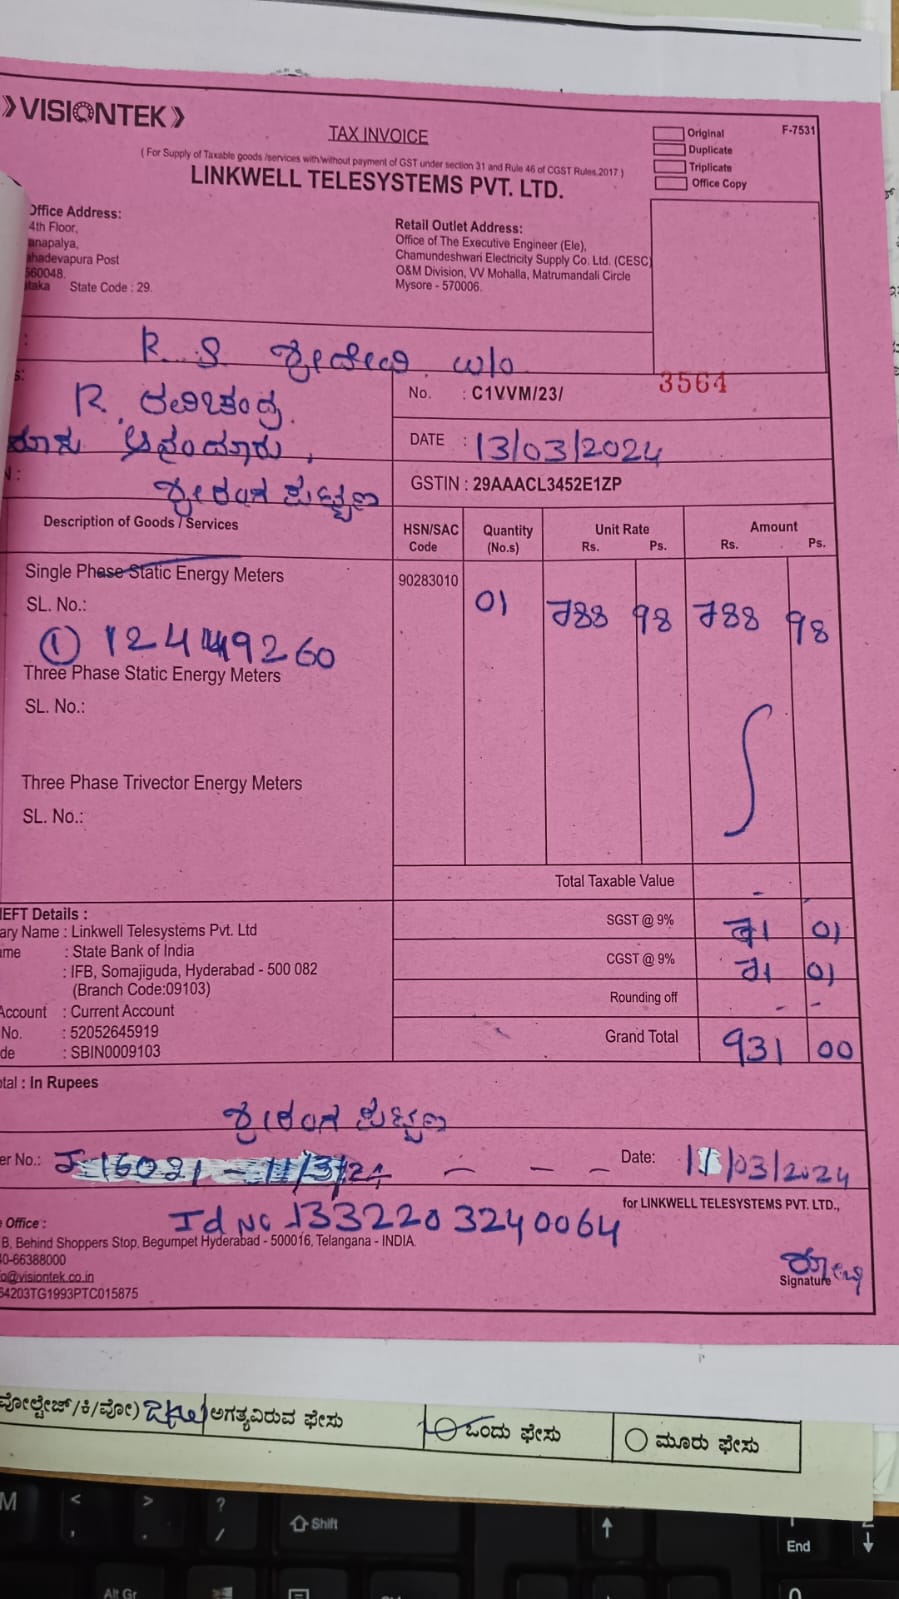 VISIONTEK
TAX INVOICE
F-7531
Original
Duplicate
Triplicate
Office Copy
( For Supply of Taxable goods /services with/without payment of GST under section 31 and Rule 46 of CGST Rules,2017 )
LINKWELL TELESYSTEMS PVT. LTD.
Office Address:
4th Floor,
anapalya,
ahadevapura Post
560048.
ataka State Code : 29.
Retail Outlet Address:
Office of The Executive Engineer (Ele),
Chamundeshwari Electricity Supply Co. Ltd. (CESC)
O&M Division, VV Mohalla, Matrumandali Circle
Mysore - 570006.
R. S ಶ್ರೀದೇವಿ w/o
R. ರವಿಚಂದ್ರ
No. : C1VVM/23/ 3564
DATE : 13/03/2024
GSTIN : 29AAACL3452E1ZP
Description of Goods / Services
HSN/SAC Code
Quantity (No.s)
Unit Rate
Rs. Ps.
Amount
Rs. Ps.
Single Phase Static Energy Meters
90283010
01 788 98 788 98
SL. No.:
Three Phase Static Energy Meters
SL. No.:
Three Phase Trivector Energy Meters
SL. No.:
Total Taxable Value -
SGST @ 9% 71 01
CGST @ 9% 71 01
Rounding off - -
Grand Total 931 00
EFT Details :
ary Name : Linkwell Telesystems Pvt. Ltd
ame : State Bank of India
: IFB, Somajiguda, Hyderabad - 500 082
(Branch Code:09103)
Account : Current Account
No. : 52052645919
de : SBIN0009103
otal : In Rupees
er No.: 16021 - 11/3/24 - - -
Date: 11/03/2024
for LINKWELL TELESYSTEMS PVT. LTD.,
Id No 1332203240064
Office :
B, Behind Shoppers Stop, Begumpet Hyderabad - 500016, Telangana - INDIA.
40-66388000
fo@visiontek.co.in
64203TG1993PTC015875
Signature
ವೋಲ್ಟೇಜ್/ಕಿ/ವೋ)
ಅಗತ್ಯವಿರುವ ಫೇಸು
ಒಂದು ಫೇಸು
ಮೂರು ಫೇಸು
M < , > . ? / Shift ↑ End ↓
Alt Gr